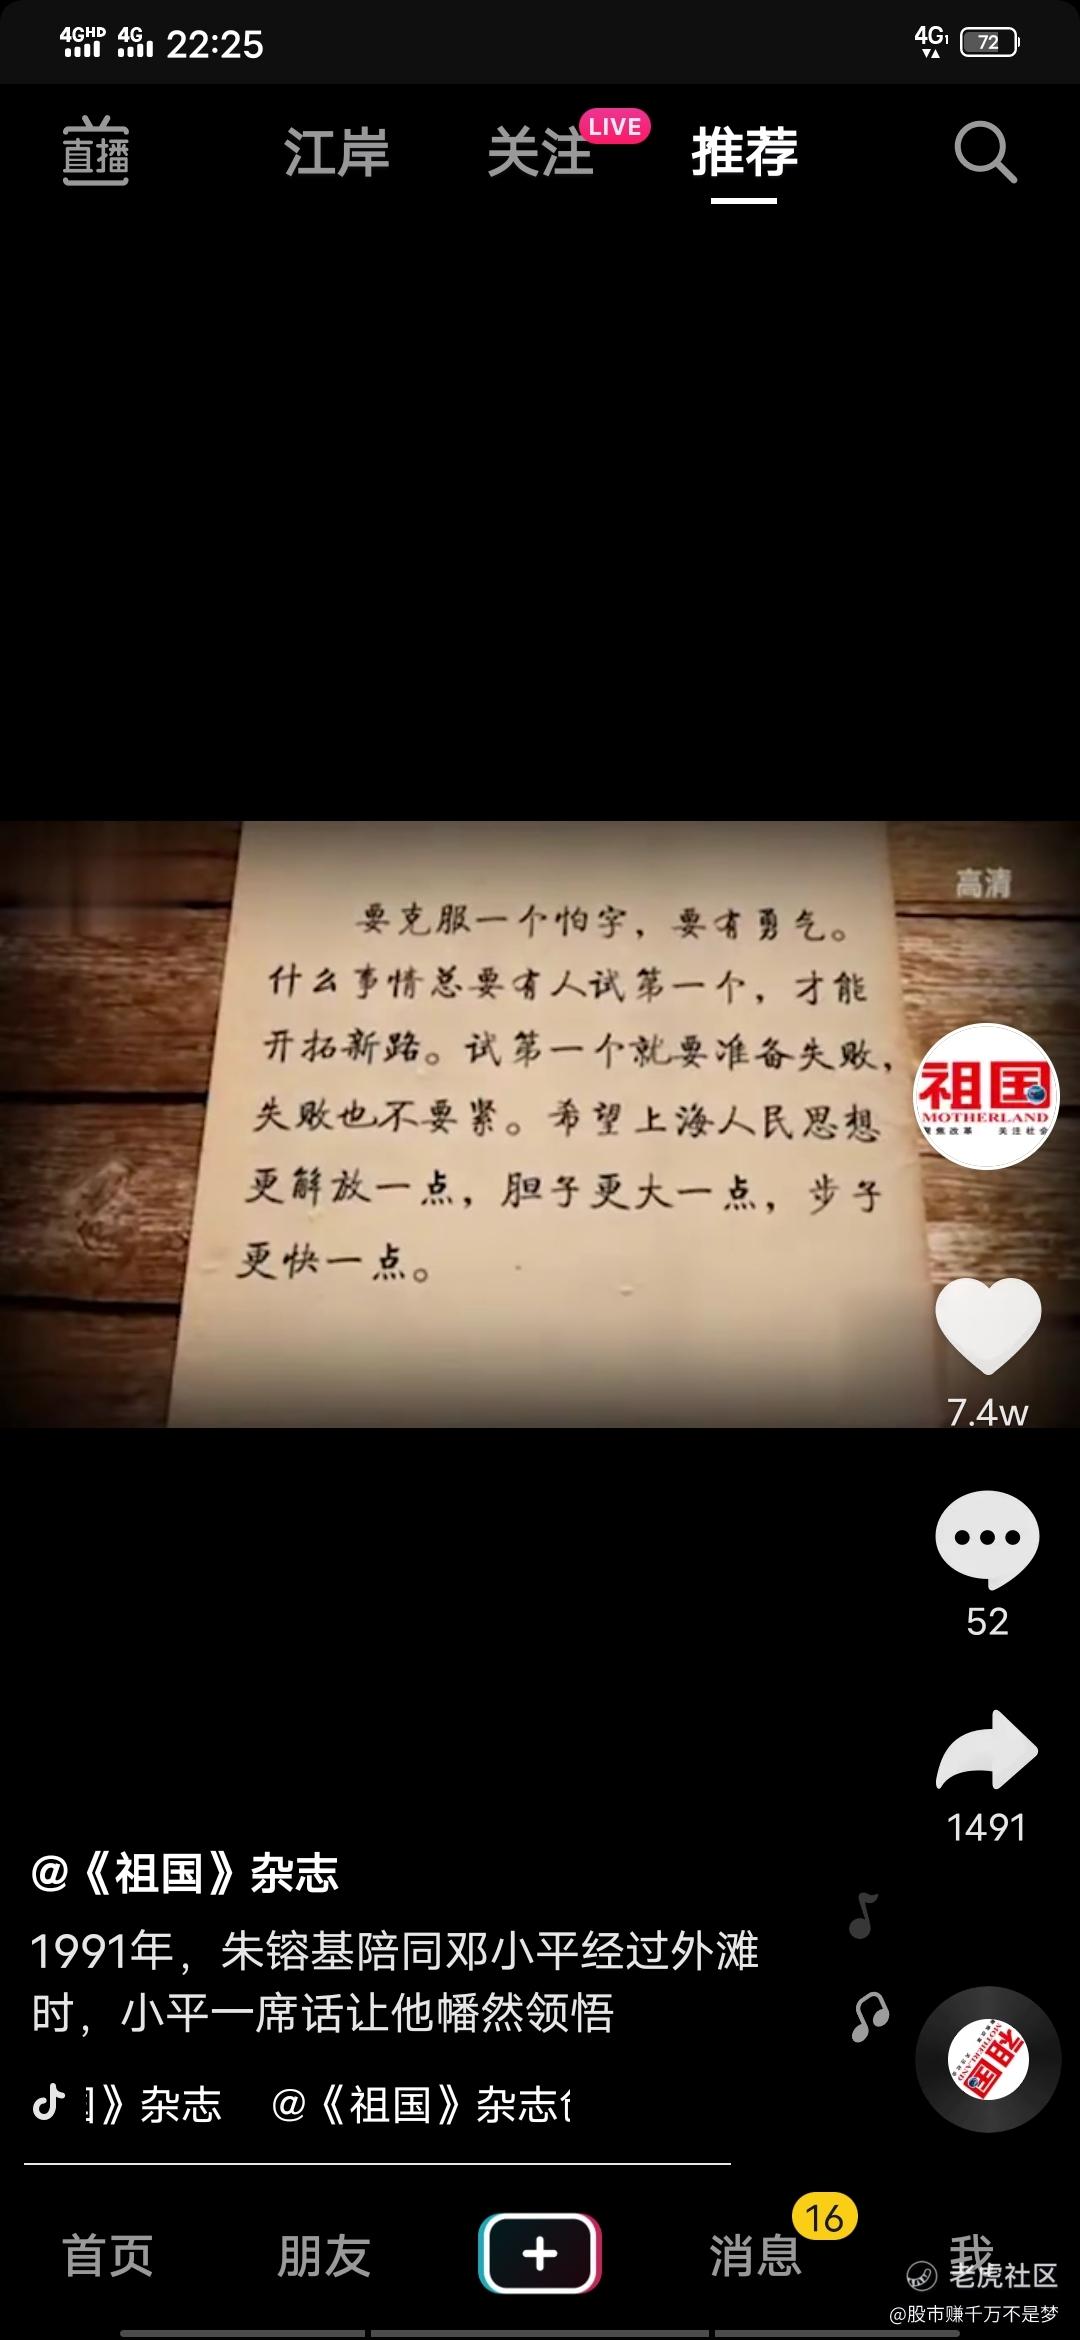 4GHD 4G 22:25 4G 72
直播 江岸 关注 LIVE 推荐
高清
要克服一个怕字，要有勇气。
什么事情总要有人试第一个，才能
开拓新路。试第一个就要准备失败，
失败也不要紧。希望上海人民思想
更解放一点，胆子更大一点，步子
更快一点。
祖国
MOTHERLAND
聚焦改革 关注社会
7.4w
52
1491
@《祖国》杂志
1991年，朱镕基陪同邓小平经过外滩
时，小平一席话让他幡然领悟
祖国
MOTHERLAND
》杂志 @《祖国》杂志
首页 朋友 消息 16 我
老虎社区
@股市赚千万不是梦